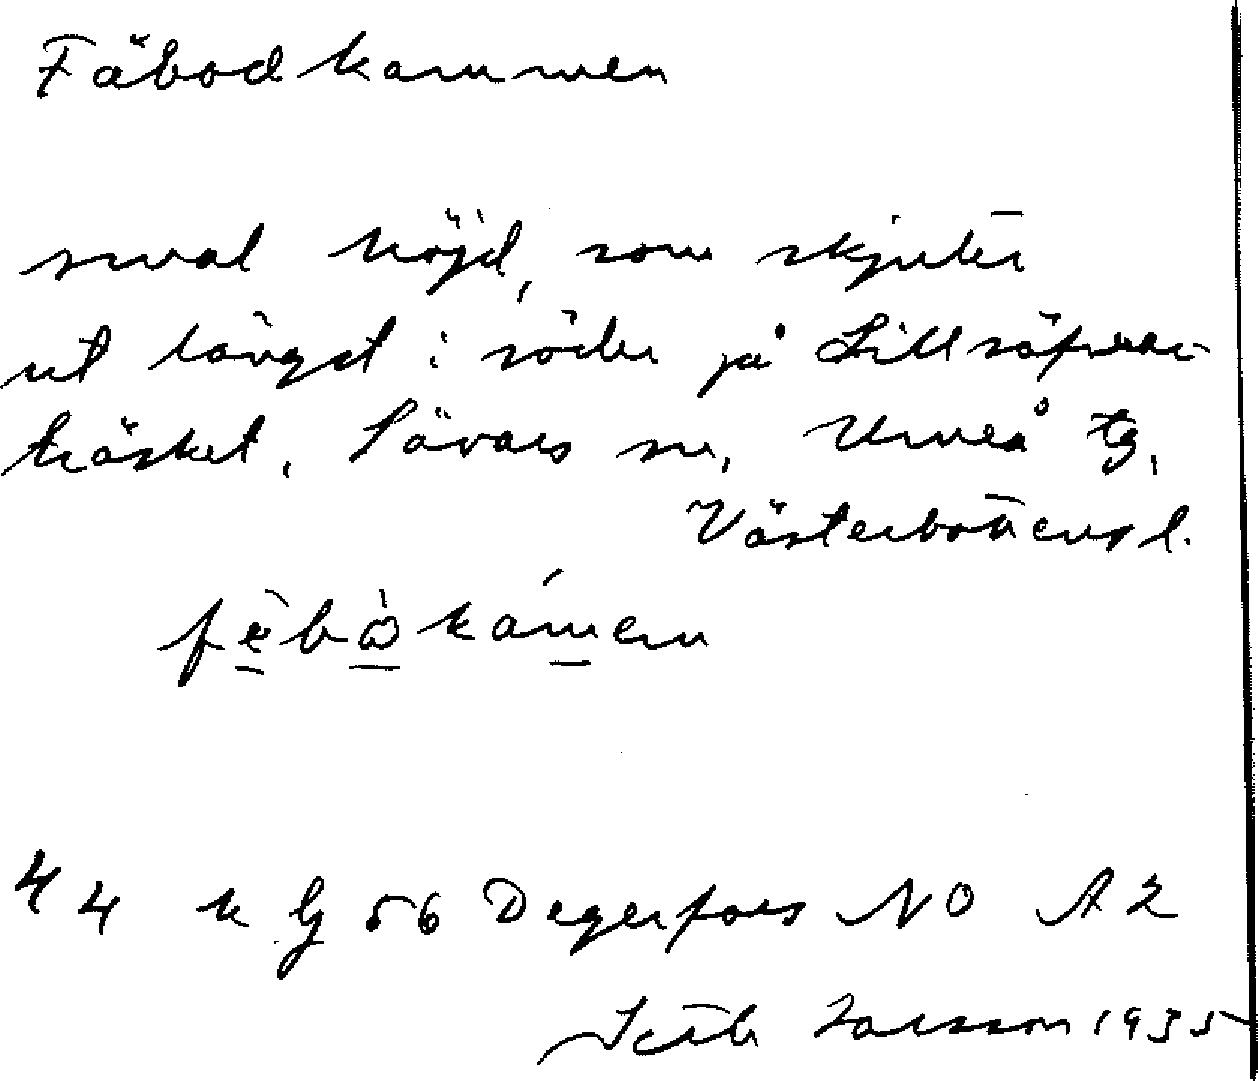 Fäbodkammen
smal höjd, som skjuter
ut längst i söder på Lillsäfvar-
träsket, Sävars sn, Umeå tg,
Västerbottens l.
fäbòkámen
44 k Gf 56 Degerfors NO A2
Larsson 1935